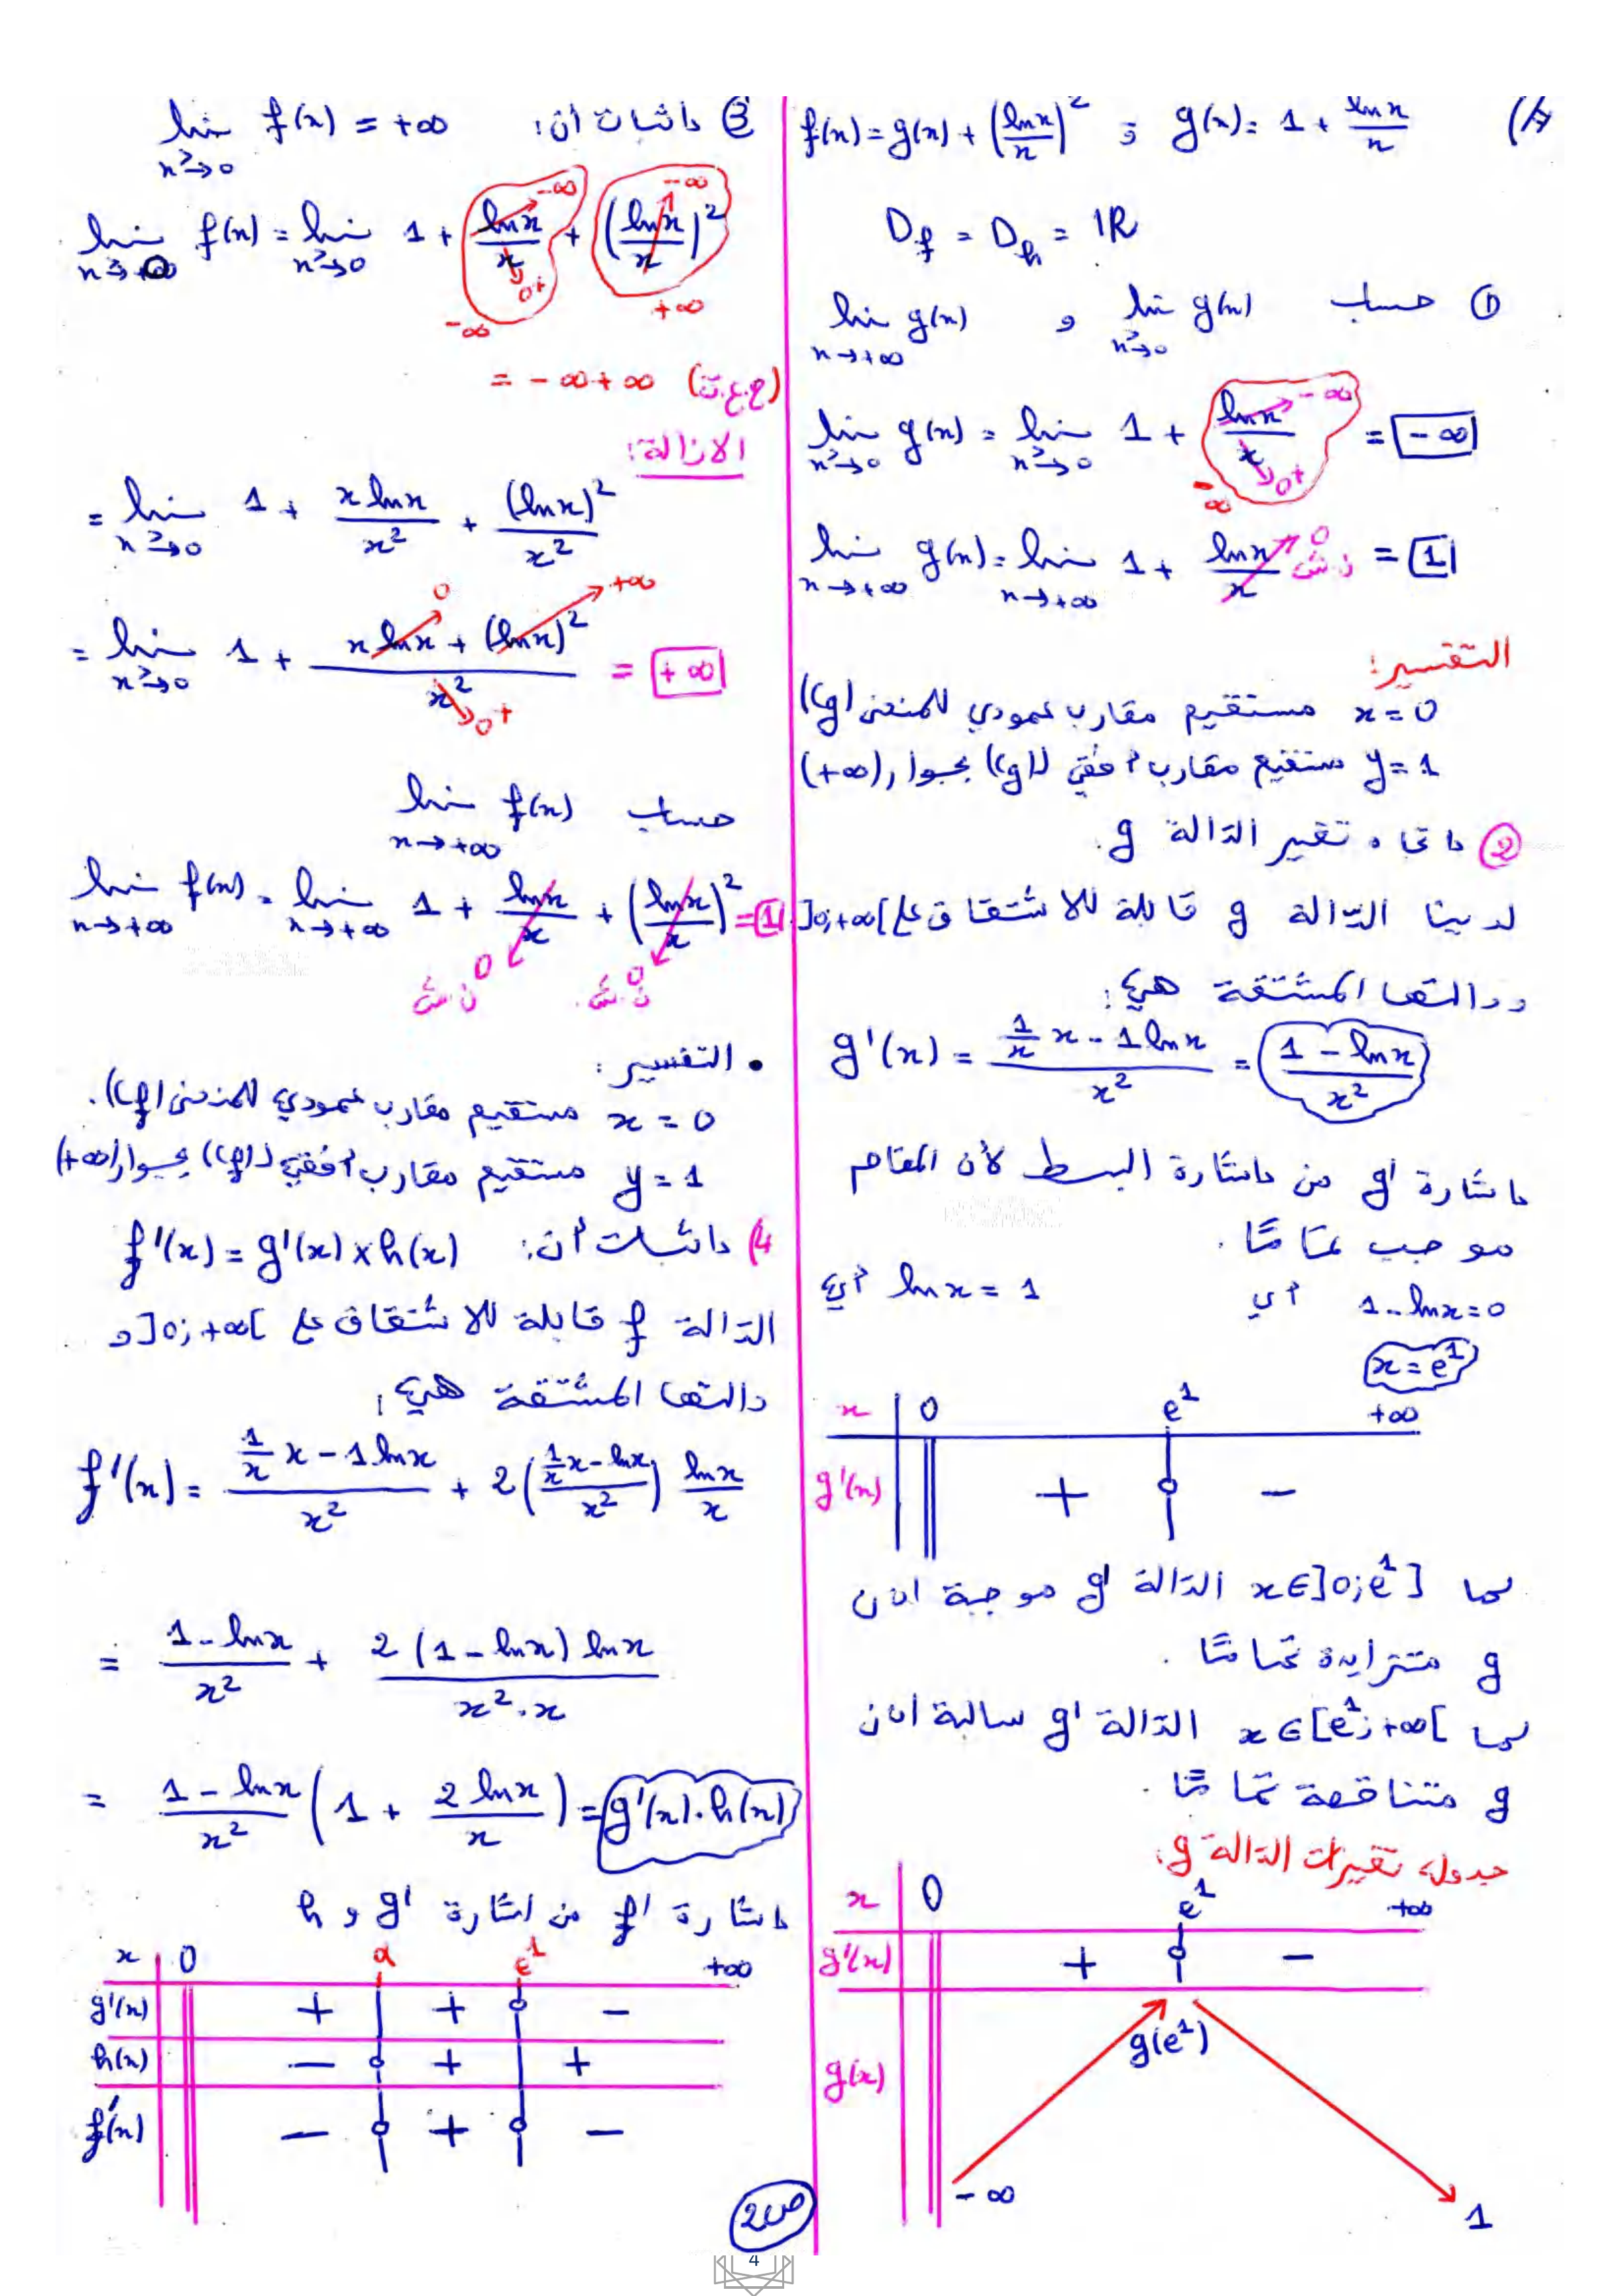 A) g(x) = 1 + lnx/x و f(x) = g(x) + (lnx/x)²
D_f = D_h = IR
① حساب lim x→>0 g(x) و lim x→+∞ g(x)
lim x→>0 g(x) = lim x→>0 1 + lnx/x = -∞
-∞
0+
-∞
lim x→+∞ g(x) = lim x→+∞ 1 + lnx/x = 1
0 ن.ش
التفسير:
x = 0 مستقيم مقارب عمودي للمنحنى (Cg)
y = 1 مستقيم مقارب أفقي لـ (Cg) بجوار (+∞)
② اتجاه تغير الدالة g.
لدينا الدالة g قابلة للاشتقاق على ]0;+∞[
ودالتها المشتقة هي:
g'(x) = (1/x x - 1lnx)/x² = (1 - lnx)/x²
اشارة g' من اشارة البسط لأن المقام
موجب تمامًا.
1-lnx=0 أي lnx = 1 أي
x = e¹
x 0 e¹ +∞
g'(x) + -
لما x∈]0;e¹] الدالة g' موجبة اذن
g متزايدة تمامًا.
لما x∈[e¹;+∞[ الدالة g' سالبة اذن
g متناقصة تمامًا.
جدول تغيرات الدالة g:
x 0 e¹ +∞
g'(x) + -
g(x) -∞ g(e¹) 1
③ اثبات أن: lim x→>0 f(x) = +∞
lim f(x) = lim x→>0 1 + lnx/x + (lnx/x)²
-∞ -∞
0+
-∞ +∞
= -∞+∞ (ح.ع.ت)
الازالة:
= lim x→>0 1 + xlnx/x² + (lnx)²/x²
= lim x→>0 1 + (xlnx + (lnx)²)/x² = +∞
0 +∞
0+
حساب lim x→+∞ f(x)
lim x→+∞ f(x) = lim x→+∞ 1 + lnx/x + (lnx/x)² = 1
0 ن.ش 0 ن.ش
• التفسير:
x = 0 مستقيم مقارب عمودي للمنحنى (Cf).
y = 1 مستقيم مقارب أفقي لـ (Cf) بجوار (+∞)
4) اثبات أن: f'(x) = g'(x) x h(x)
الدالة f قابلة للاشتقاق على ]0;+∞[ و
دالتها المشتقة هي:
f'(x) = (1/x x - 1lnx)/x² + 2((1/x x - lnx)/x²) lnx/x
= (1-lnx)/x² + 2(1-lnx)lnx/x².x
= (1-lnx)/x² (1 + 2lnx/x) = g'(x).h(x)
اشارة f' من اشارة g' و h
x 0 α e¹ +∞
g'(x) + + -
h(x) - + +
f'(x) - + -
ص2
4